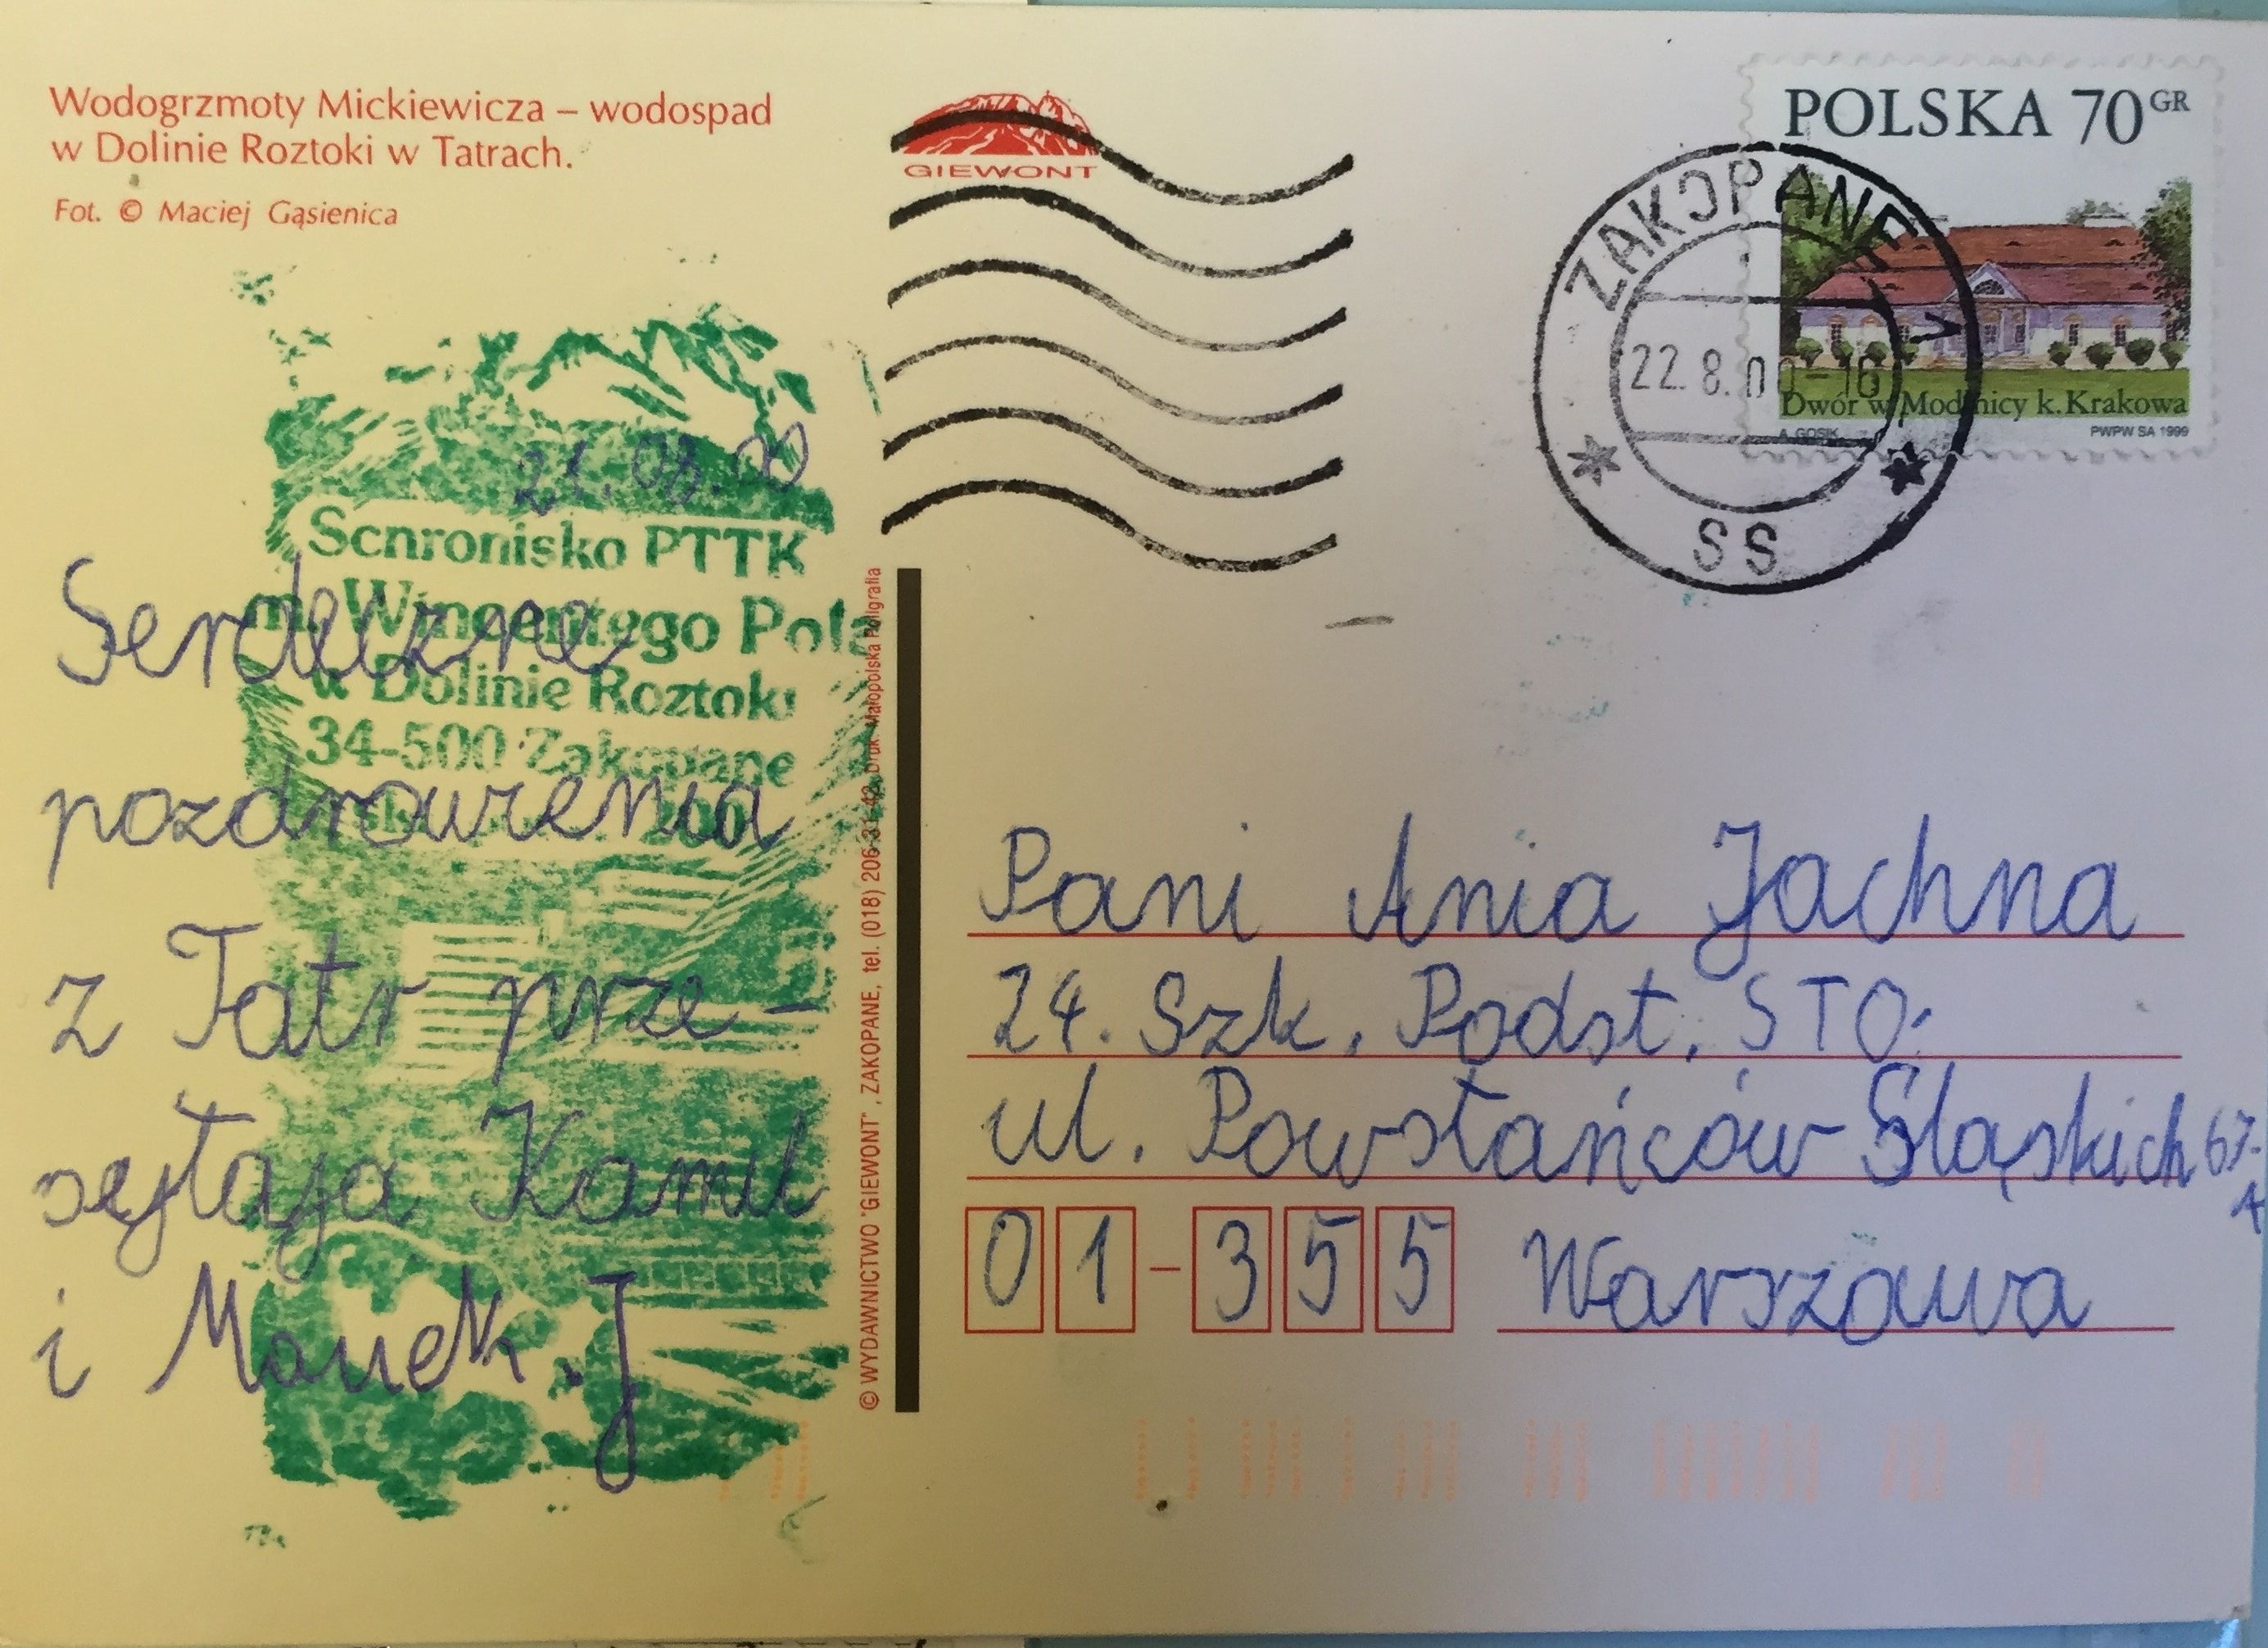 Wodogrzmoty Mickiewicza – wodospad
w Dolinie Roztoki w Tatrach.
Fot. © Maciej Gąsienica
GIEWONT
POLSKA 70GR
Dwór w Modlnicy k.Krakowa
A. GOSIK
PWPW SA 1999
ZAKOPANE
22.8.00-16
SS
21.08.00
Schronisko PTTK
im. Wincentego Pola
w Dolinie Roztoki
34-500 Zakopane
Serdeczne
pozdrowienia
z Tatr prze-
syłają Kamil
i Manek.J
© WYDAWNICTWO "GIEWONT", ZAKOPANE, tel. (018) 206-31-42, Druk: Małopolska Poligrafia
Pani Ania Jachna
24. Szk. Podst. STO.
ul. Powstańców Śląskich 67.
A
01-355 Warszawa